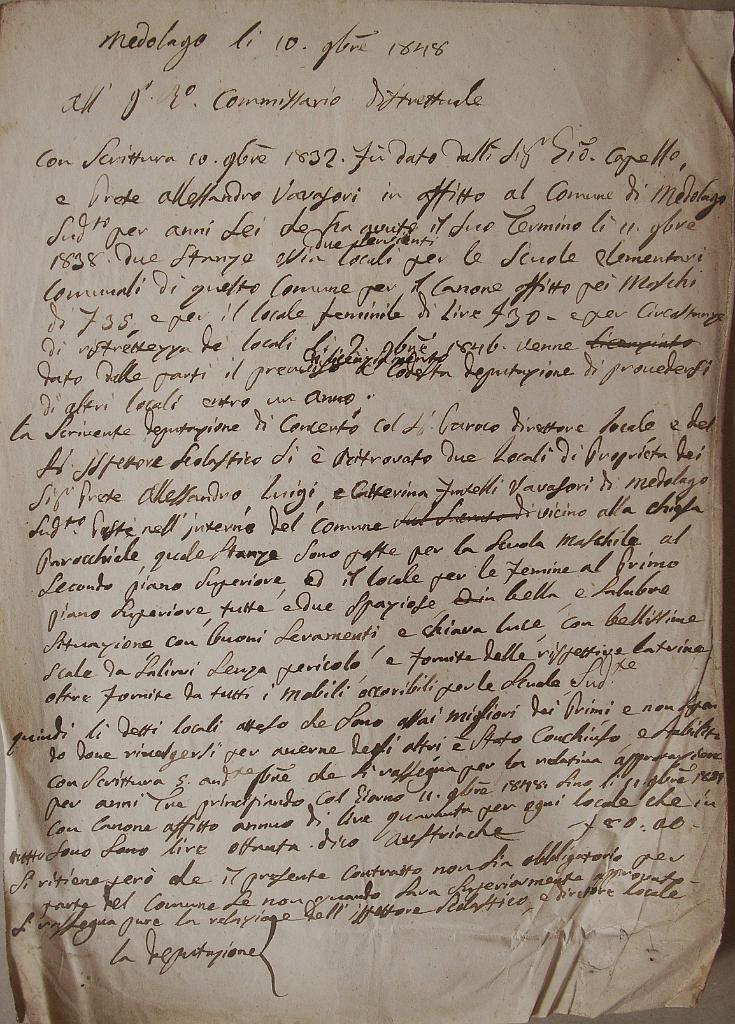 Medolago li 10. 9bre 1848
All' J. R.o Commissario Distrettuale
Con Scrittura 10. 9bre 1832. Fù dato dalli Sig.ri Gio. Capello,
e Prete Allessandro Vavasori in affitto al Comune di Medolago
Sud.to per anni Sei che ha avuto il suo Termino li 11. 9bre
1838. due Stanze ossia locali per le Scuole Elementari
Comunali di questo Comune per il Canone affitto pei Maschi
di £ 35 e per il locale feminile di Lire £ 30 - e per Circostanze
di ristrettezza de locali li 9bre 1846. venne licenziato
dato dalle parti il a Codesta deputazione di provedersi
di altri locali entro un anno.
la Scrivente deputazione di Concerto col Sig. Paroco direttore locale e del
Sig. Ispettore Scolastico Si è Ritrovato due locali di Proprietà dei
Sig.ri Prete Allessandro Luigi, e Catterina Fratelli Vavasori di Medolago
Sud.to Poste nell'interno del Comune di vicino alla Chiesa
Parocchiale, quale Stanze sono poste per la Scuola Maschile al
Secondo piano Superiore, ed il locale per le Femine al Primo
piano Superiore, tutte e due Spaziose, in bella e Salubre
Situazione con buoni Seramenti e chiara luce, con bellissime
Scale da Salirvi Senza pericolo, e Fornite delle rispettive latrine
oltre Fornite da tutti i mobili occoribili per le Scuole Sud.te
quindi li detti locali atteso che Sono assai migliori dei Primi e non Sapen
do dove rivolgersi per averne degli altri è Stato Conchiuso e Stabilito
con Scrittura 5. and.te 9bre che Si rassegna per la relativa approvazione
per anni Tre principiando Col Giorno 11. 9bre 1848. Sino li 11 9bre 1851
con Canone affitto annuo di lire quaranta per ogni locale che in
tutto Sono Sono lire ottanta. dico Austriache £ 80. 00 -
Si ritiene però che il presente Contratto non Sia obbligatorio per
parte del Comune Se non quando Sara Superiormente approvato
Si rassegna pure la relazione dell'Ispettore Scolastico, e direttore locale
la deputazione